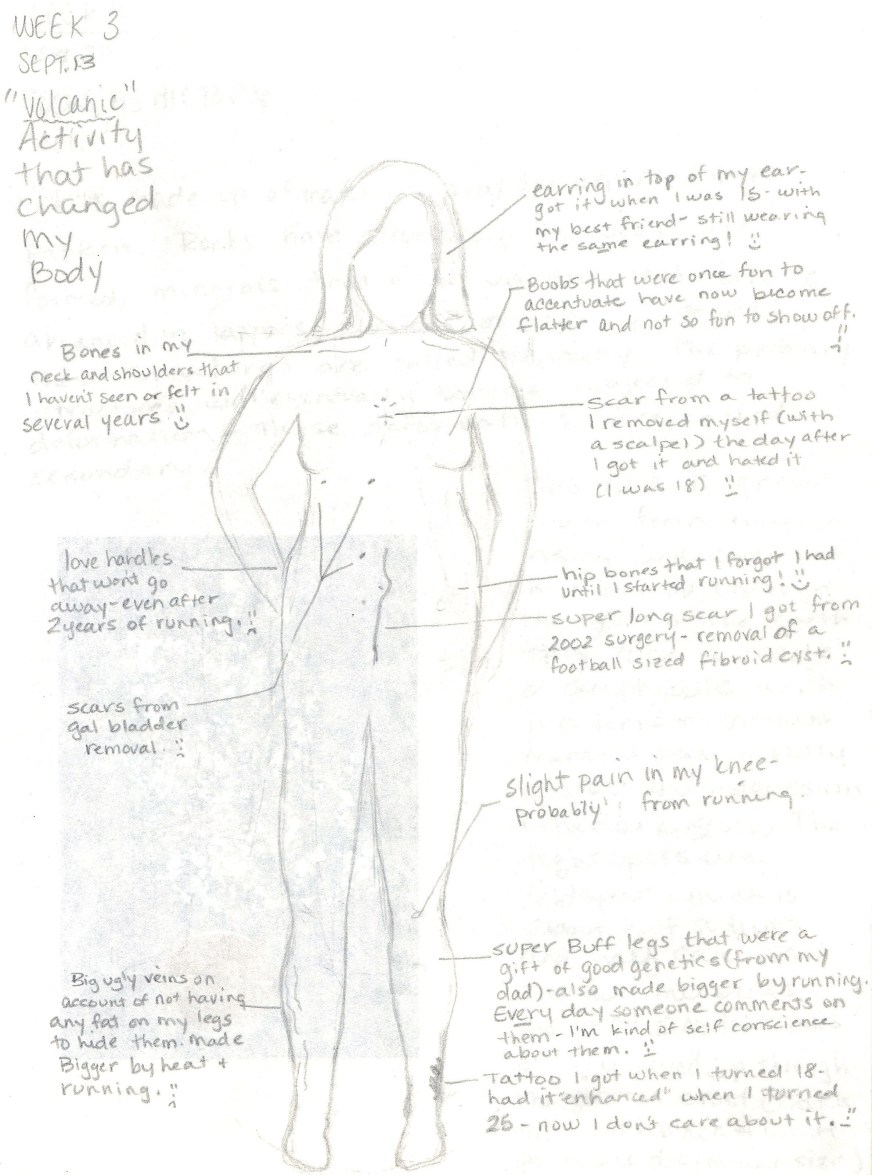 WEEK 3
SEPT. 13
"Volcanic"
Activity
that has
changed
my
Body
earring in top of my ear-
got it when I was 15- with
my best friend- still wearing
the same earring!
Boobs that were once fun to
accentuate have now become
flatter and not so fun to show off.
Bones in my
neck and shoulders that
I haven't seen or felt in
several years
scar from a tattoo
I removed myself (with
a scalpel) the day after
I got it and hated it
(I was 18)
love handles
that wont go
away-even after
2 years of running.
hip bones that I forgot I had
until I started running!
super long scar I got from
2002 surgery- removal of a
football sized fibroid cyst.
scars from
gal bladder
removal.
slight pain in my knee-
probably from running.
super Buff legs that were a
gift of good genetics (from my
dad)-also made bigger by running.
Every day someone comments on
them- I'm kind of self conscience
about them.
Big ugly veins on
account of not having
any fat on my legs
to hide them. made
Bigger by heat +
running.
Tattoo I got when I turned 18-
had it "enhanced" when I turned
25 - now I don't care about it.